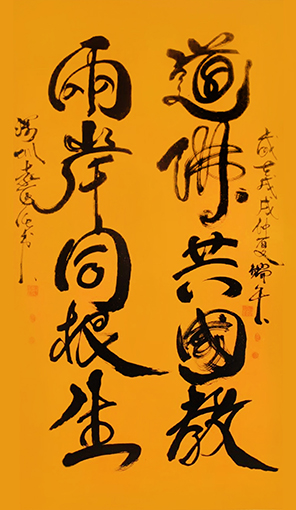 歲在戊戌仲夏端午
道佛共國教
兩岸同根生